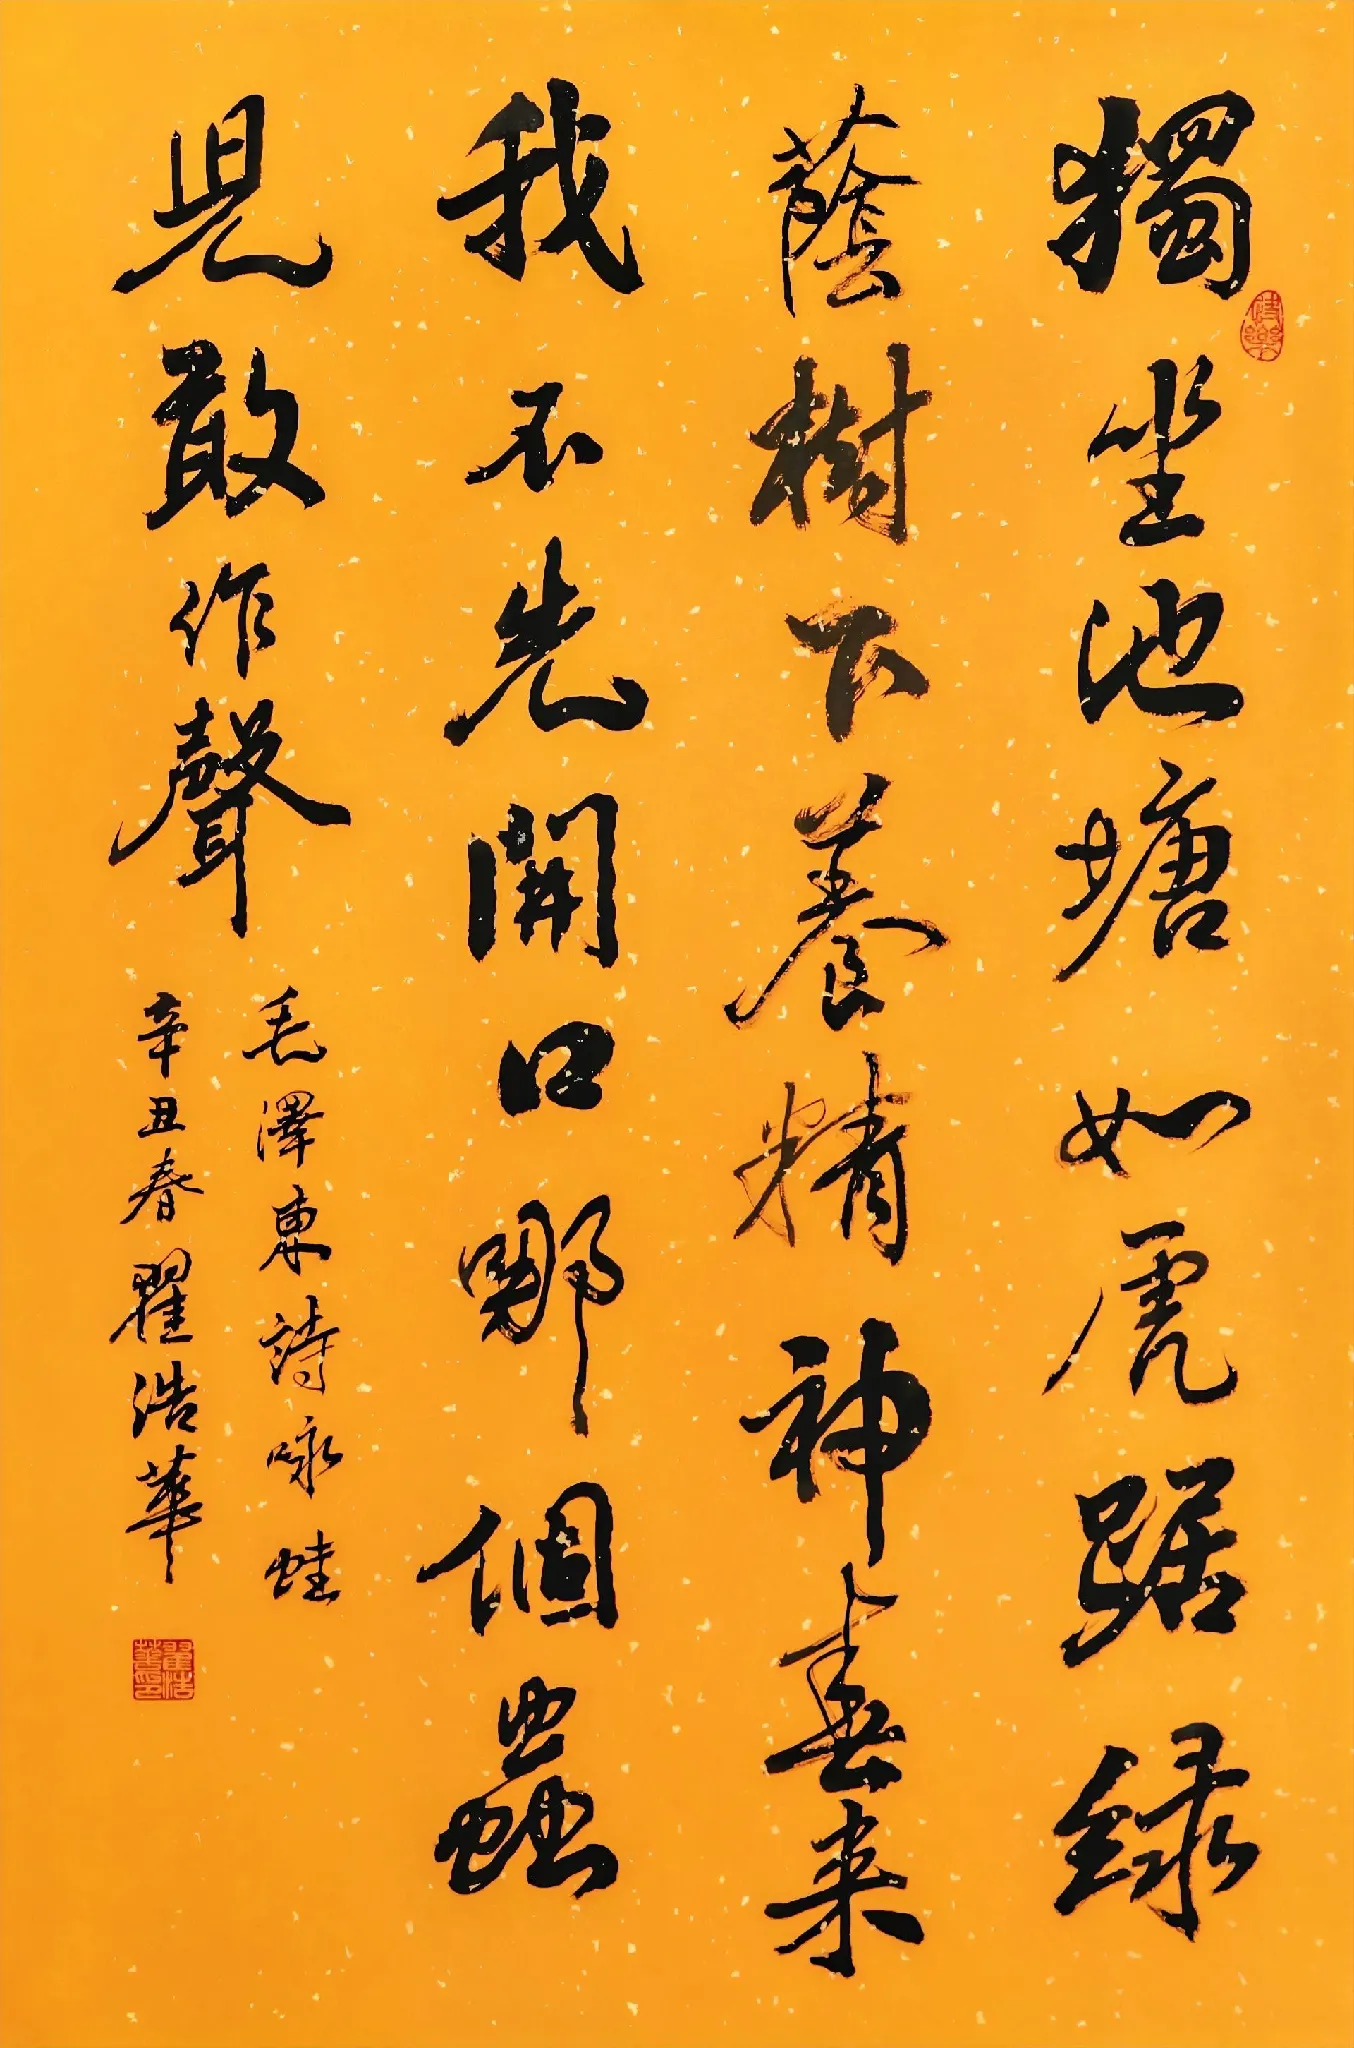 獨坐池塘如虎踞録
蔭樹下養精神春来
我不先開口哪個蟲
兒敢作聲
毛澤東詩咏蛙
辛丑春翟浩華
翟浩華印